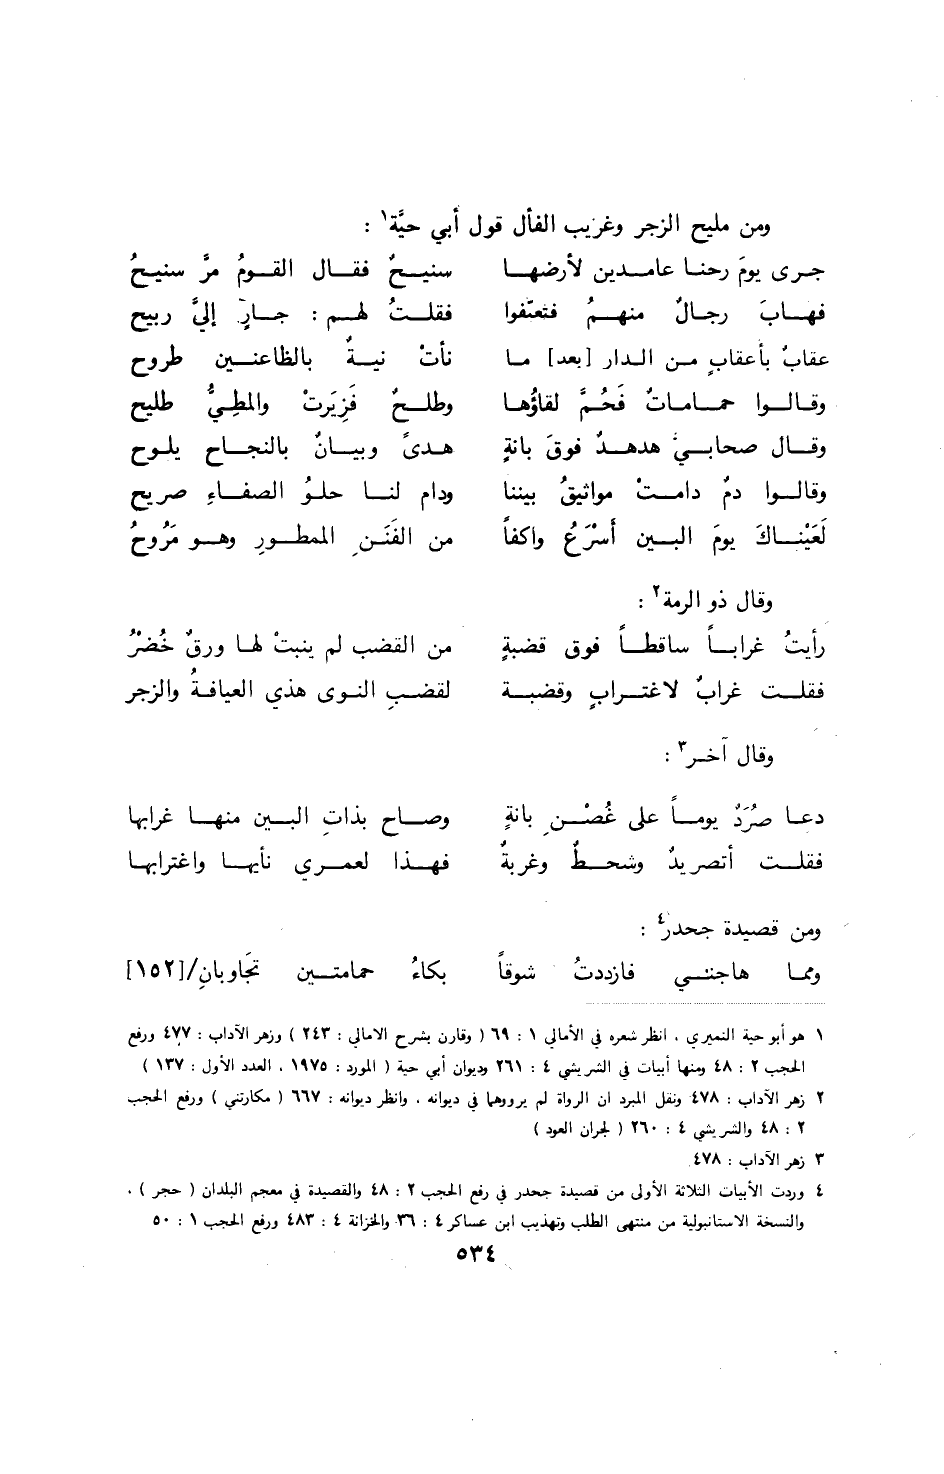 ومن مليح الزجر وغريب الفأل قول أبي حيَّة١ :
جرى يومَ رحنا عامدين لأرضها سنيحٌ فقال القومُ مرَّ سنيحُ
فهابَ رجالٌ منهمُ فتعيّفوا فقلتُ لهم : جارٍ إليَّ ربيح
عقابٌ بأعقابٍ من الدار [بعد] ما نأتْ نيةٌ بالظاعنين طروح
وقالوا حماماتٌ فَحُمَّ لقاؤُها وطلحٌ فَزِيَرتْ والمطيُّ طليح
وقال صحابي هدهدٌ فوقَ بانةٍ هدىً وبيانٌ بالنجاح يلوح
وقالوا دمٌ دامتْ مواثيقُ بيننا ودام لنا حلوُ الصفاءِ صريح
لَعَيْناكَ يومَ البين أسْرَعُ واكفاً من الفَنَنِ الممطورِ وهو مَرُوحُ
وقال ذو الرمة٢ :
رأيتُ غراباً ساقطاً فوق قضبةٍ من القضب لم ينبتْ لها ورقٌ خُضْرُ
فقلت غرابٌ لاغترابٍ وقضبة لقضبِ النوى هذي العيافةُ والزجر
وقال آخر٣ :
دعا صُرَدٌ يوماً على غُصْنِ بانةٍ وصاح بذاتِ البين منها غرابها
فقلت أتصريدٌ وشحطٌ وغربةٌ فهذا لعمري نأيها واغترابها
ومن قصيدة جحدر٤ :
ومما هاجني فازددتُ شوقاً بكاءُ حمامتين تجَاوبانِ/[١٥٢]
١ هو أبو حية النميري ، انظر شعره في الأمالي ١ : ٦٩ ( وقارن بشرح الامالي : ٢٤٣ ) وزهر الآداب : ٤٧٧ ورفع
الحجب ٢ : ٤٨ ومنها أبيات في الشريشي ٤ : ٢٦١ وديوان أبي حية ( المورد : ١٩٧٥ ، العدد الأول : ١٣٧ )
٢ زهر الآداب : ٤٧٨ ونقل المبرد ان الرواة لم يرووهما في ديوانه ، وانظر ديوانه : ٦٦٧ ( مكارتني ) ورفع الحجب
٢ : ٤٨ والشريشي ٤ : ٢٦٠ ( لجران العود )
٣ زهر الآداب : ٤٧٨
٤ وردت الأبيات الثلاثة الأولى من قصيدة جحدر في رفع الحجب ٢ : ٤٨ والقصيدة في معجم البلدان ( حجر ) ،
والنسخة الاستانبولية من منتهى الطلب وتهذيب ابن عساكر ٤ : ٣٦ والخزانة ٤ : ٤٨٣ ورفع الحجب ١ : ٥٠
٥٣٤